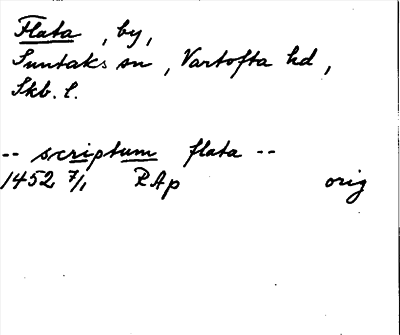 Flata , by,
Suntaks sn , Vartofta hd ,
Skb. l.
-- scriptum flata --
1452 7/1 RAp orig